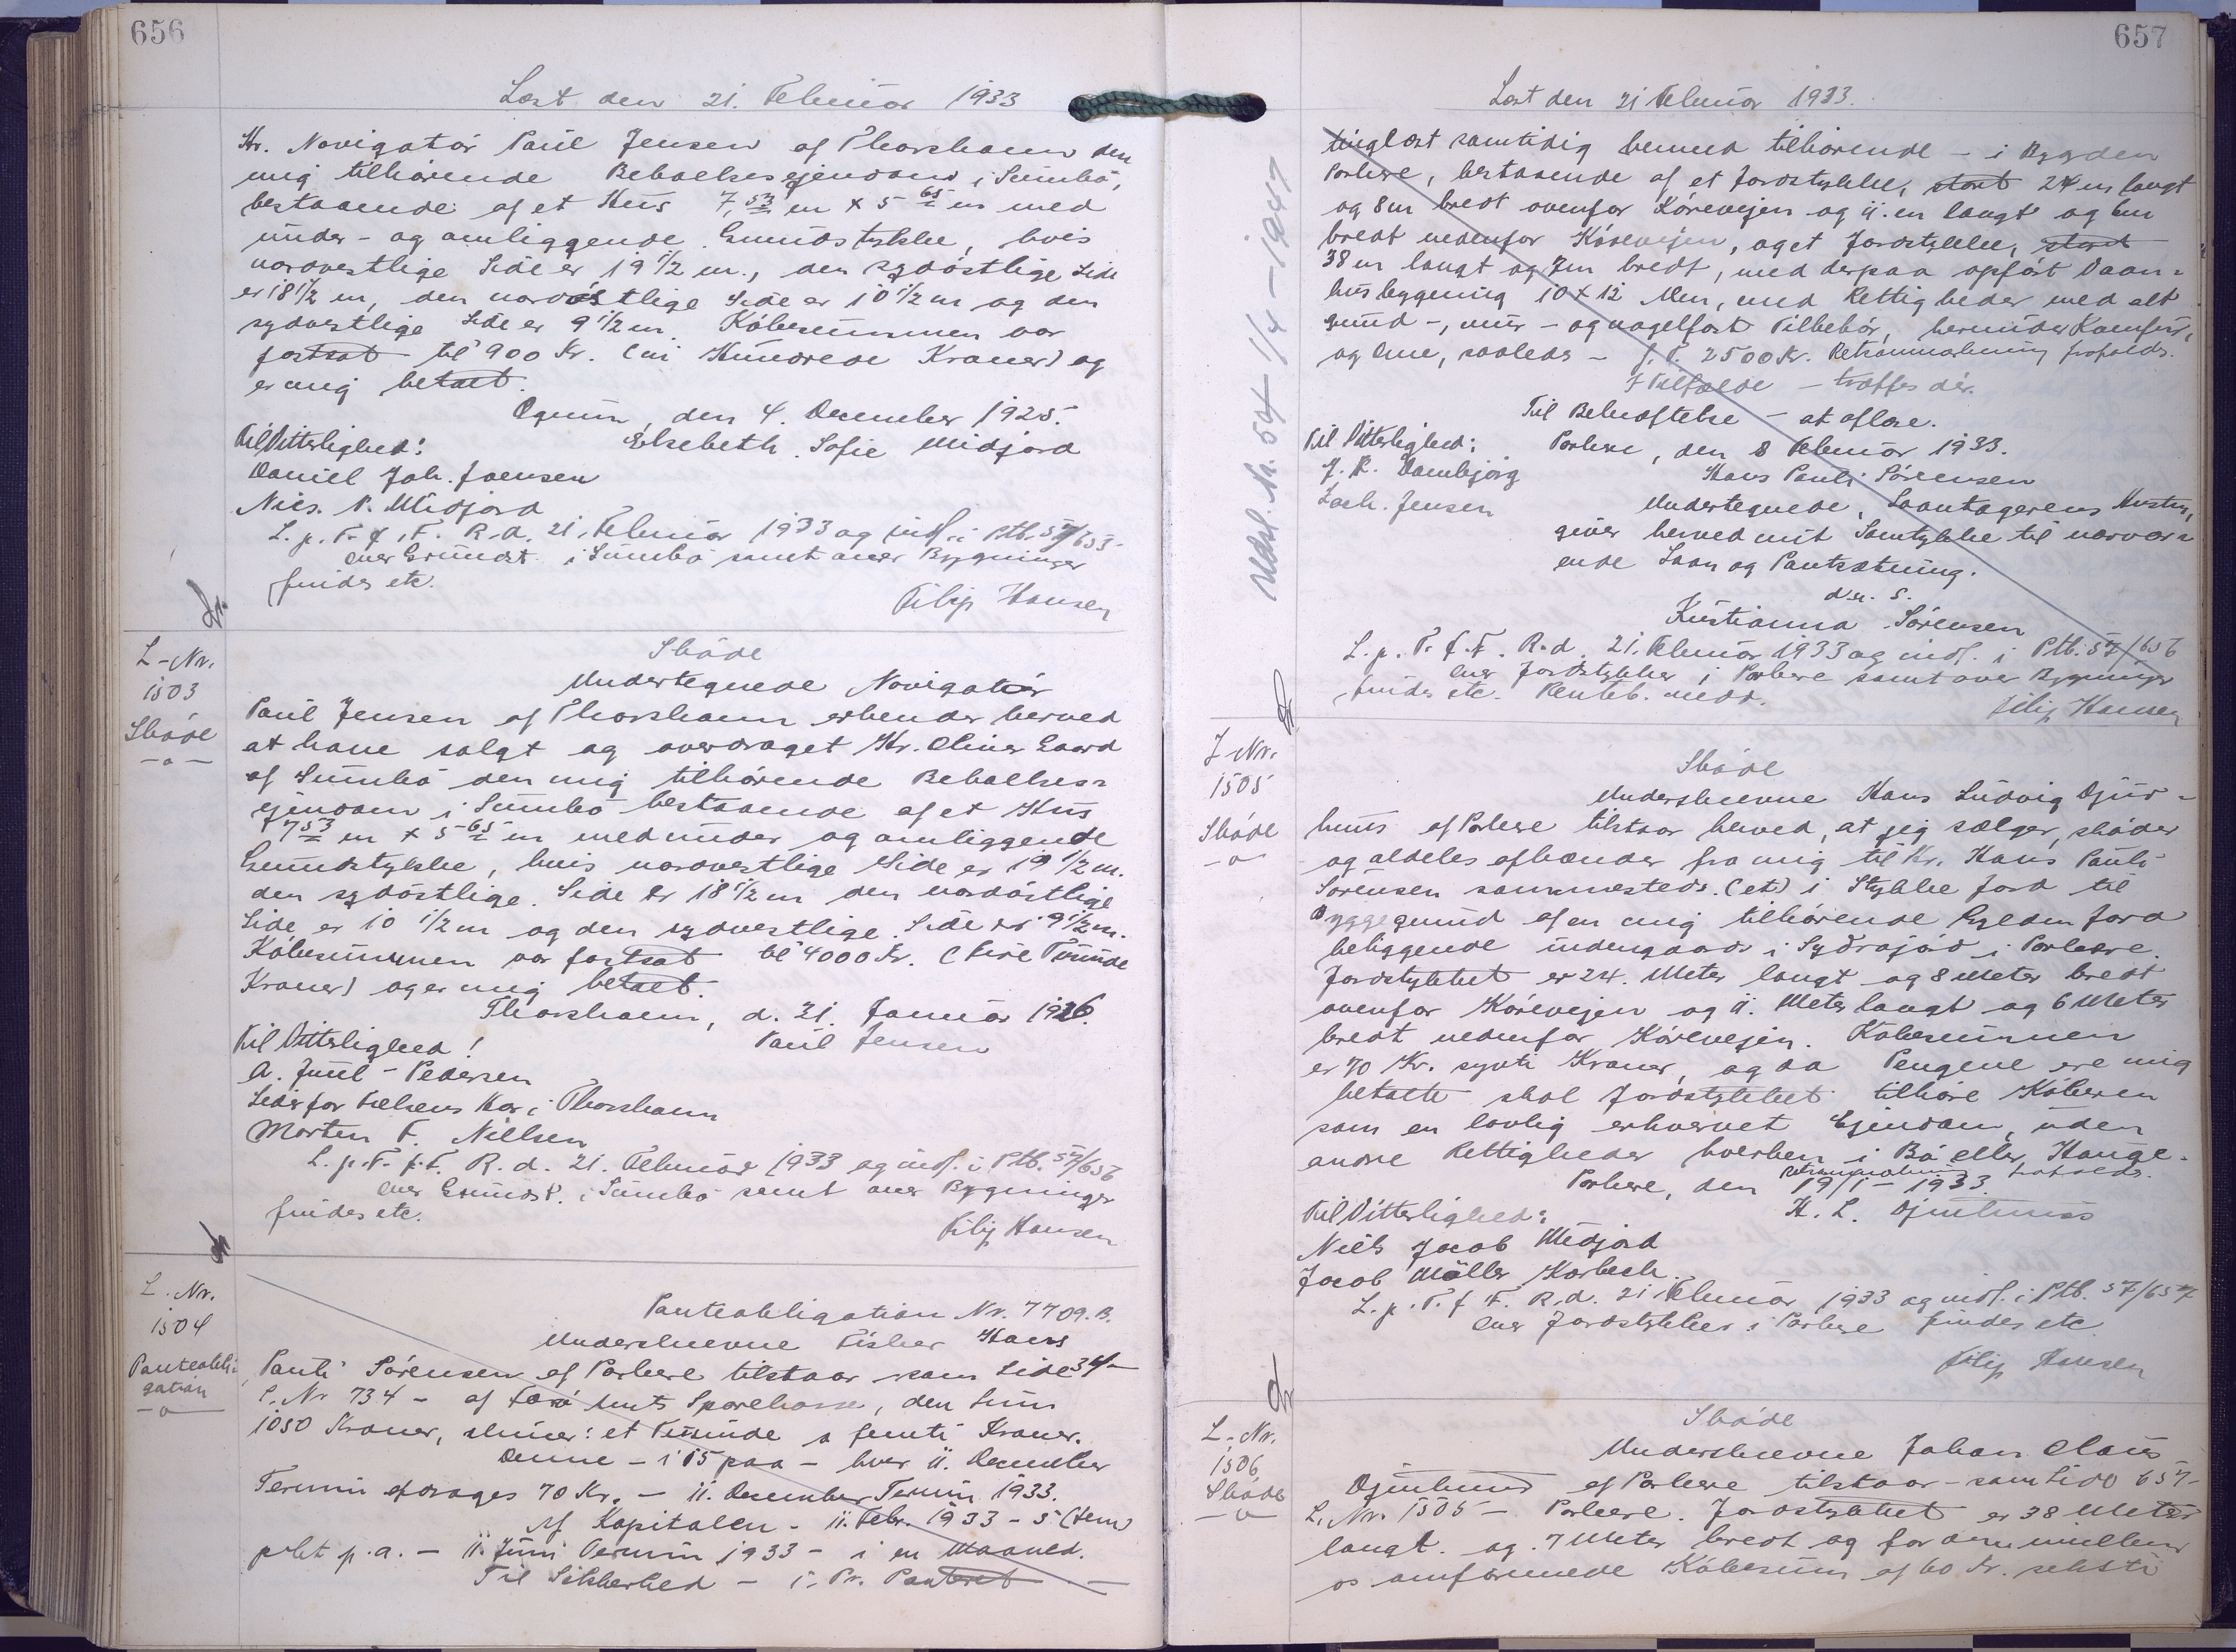 656
Læst den 21. Februar 1933
Hr. Navigatør Paul Jensen af Thorshavn den
mig tilhørende Beboelsesejendom i Sumbø,
bestaaende af et Hus 7,53 m x 5 65 m med
under- og omliggende Grundstykke, hvis
nordvestlige Side er 19 1/2 m., den sydøstlige Side
er 18 1/2 m, den nordøstlige Side er 10 1/2 m og den
sydvestlige Side er 9 1/2 m. Købesummen var
fastsat til 900 Kr. (ni Hundrede Kroner) og
er mig betalt.
den 4. December 1925.
Til Vitterlighed: Elsebeth Sofie Midjord
Daniel Joh. Joensen
Nics. P. Midjord
L. p. T. f. F. R. d. 21. Februar 1933 og indf. i Ptb. 57/653
over Grundst. i Sumbø samt over Bygninger
findes etc.
Filip Hansen
L-Nr.
1503
Skøde
Skøde
Undertegnede Navigatør
Paul Jensen af Thorshavn erkender herved
at have solgt og overdraget Hr. Oliver Gaard
af Sumbø den mig tilhørende Beboelses=
ejendom i Sumbø bestaaende af et Hus
7 53 m x 5 65 m med under og omliggende
Grundstykke, hvis nordvestlige Side er 19 1/2 m.
den sydøstlige Side er 18 1/2 m den nordøstlige
Side er 10 1/2 m og den sydvestlige Side er 9 1/2 m.
Købesummen var fastsat til 4000 Kr. (fire Tusinde
Kroner) og er mig betalt.
Thorshavn, d. 21. Januar 1926.
Til Vitterlighed! Paul Jensen
A. Juul-Pedersen
Leder for Frelsens Hær i Thorshavn
Morten F. Nielsen
L. p. T. f. F. R. d. 21. Februar 1933 og indf. i Ptb. 57/656
over Grundst. i Sumbø samt over Bygninger
findes etc.
Filip Hansen
L. Nr.
1504
Panteobli-
gation
Panteobligation Nr. 7709.B.
Underskrevne Fisker Hans
Pauli Sørensen af Porkere tilstaar - som Side 34-
L. Nr 734 - af Færø Amts Sparekasse, den Sum
1050 Kroner, skriver: et Tusinde o femti Kroner.
Denne - i 15 paa - hver 11. December
Termin afdrages 70 Kr. - 11. December Termin 1933.
Af Kapitalen - 11. Febr. 1933 - 5 (fem)
pCt p.a. - 11. Juni Termin 1933 - i en Maaned.
Til Sikkerhed - 1. Pr. Panteret -
657
Læst den 21 Februar 1933.
Udsl. Nr. 54 1/4 - 1947
tinglæst samtidig hermed tilhørende - i Bygden
Porkere, bestaaende af et Jordstykke, stort 24 m langt
og 8 m bredt ovenfor Kørevejen og 11. m langt og 6 m
bredt nedenfor Kørevejen, og et Jordstykke, stort
38 m langt og 7 m bredt, med derpaa opført Vaan=
husbygning 10 x 12 Alen, med Rettigheder med alt
grund-, mur- og nagelfast Tilbehør, herunder Komfur,
og Ovne, saaledes - f. T. 2500 Kr. Retsanmærkning frafalds.
I Tilfælde - træffes dér.
Til Bekræftelse - at aflæse.
Til Vitterlighed: Porkere, den 8 Februar 1933.
J. K. Vambjørg Hans Pauli Sørensen
Zach. Jensen Undertegnede, Laantagerens Hustru,
giver herved mit Samtykke til nærvær=
ende Laan og Pantsætning.
d. u. s.
Kristianna Sørensen
L. p. T. f. F. R. d. 21. Februar 1933 og indf. i Ptb. 57/656
over Jordstykker i Porkere samt over Bygninger
findes etc. Renteb. medd.
Filip Hansen
L Nr.
1505
Skøde
Skøde
Underskrevne Hans Ludvig Djur-
huus af Porkere tilstaar herved, at jeg sælger, skøder
og aldeles afhænder fra mig til Hr. Hans Pauli
Sørensen sammesteds (et) 1 Stykke Jord til
Byggegrund af en mig tilhørende Gylden Jord
beliggende indengaards i Sydrajørd i Porkere.
Jordstykket er 24. Meter langt og 8 Meter bredt
ovenfor Kørevejen og 11. Meter langt og 6 Meter
bredt nedenfor Kørevejen. Købesummen
er 70 Kr. syvti Kroner, og da Pengene ere mig
betalte skal Jordstykket tilhøre Køberen
som en lovlig erhvervet Ejendom, uden
andre Rettigheder hverken i Bø eller Hauge.
Retsanmærkning frafalds.
Porkere, den 19/1 - 1933.
Til Vitterlighed: H. L. Djurhuus
Niels Jacob Midjord
Jacob Møller Korbech.
L. p. T. f. F. R. d. 21 Februar 1933 og indf. i Ptb. 57/657
over Jordstykker i Porkere findes etc.
Filip Hansen
L. Nr.
1506
Skøde
Skøde
Underskrevne Johan Claus
Djurhuus af Porkere tilstaar - som Side 657-
L. Nr. 1505 - Porkere. Jordstykket er 38 Meter
langt og 7 Meter bredt og for den mellem
os omforenede Købesum af 60 Kr. seksti